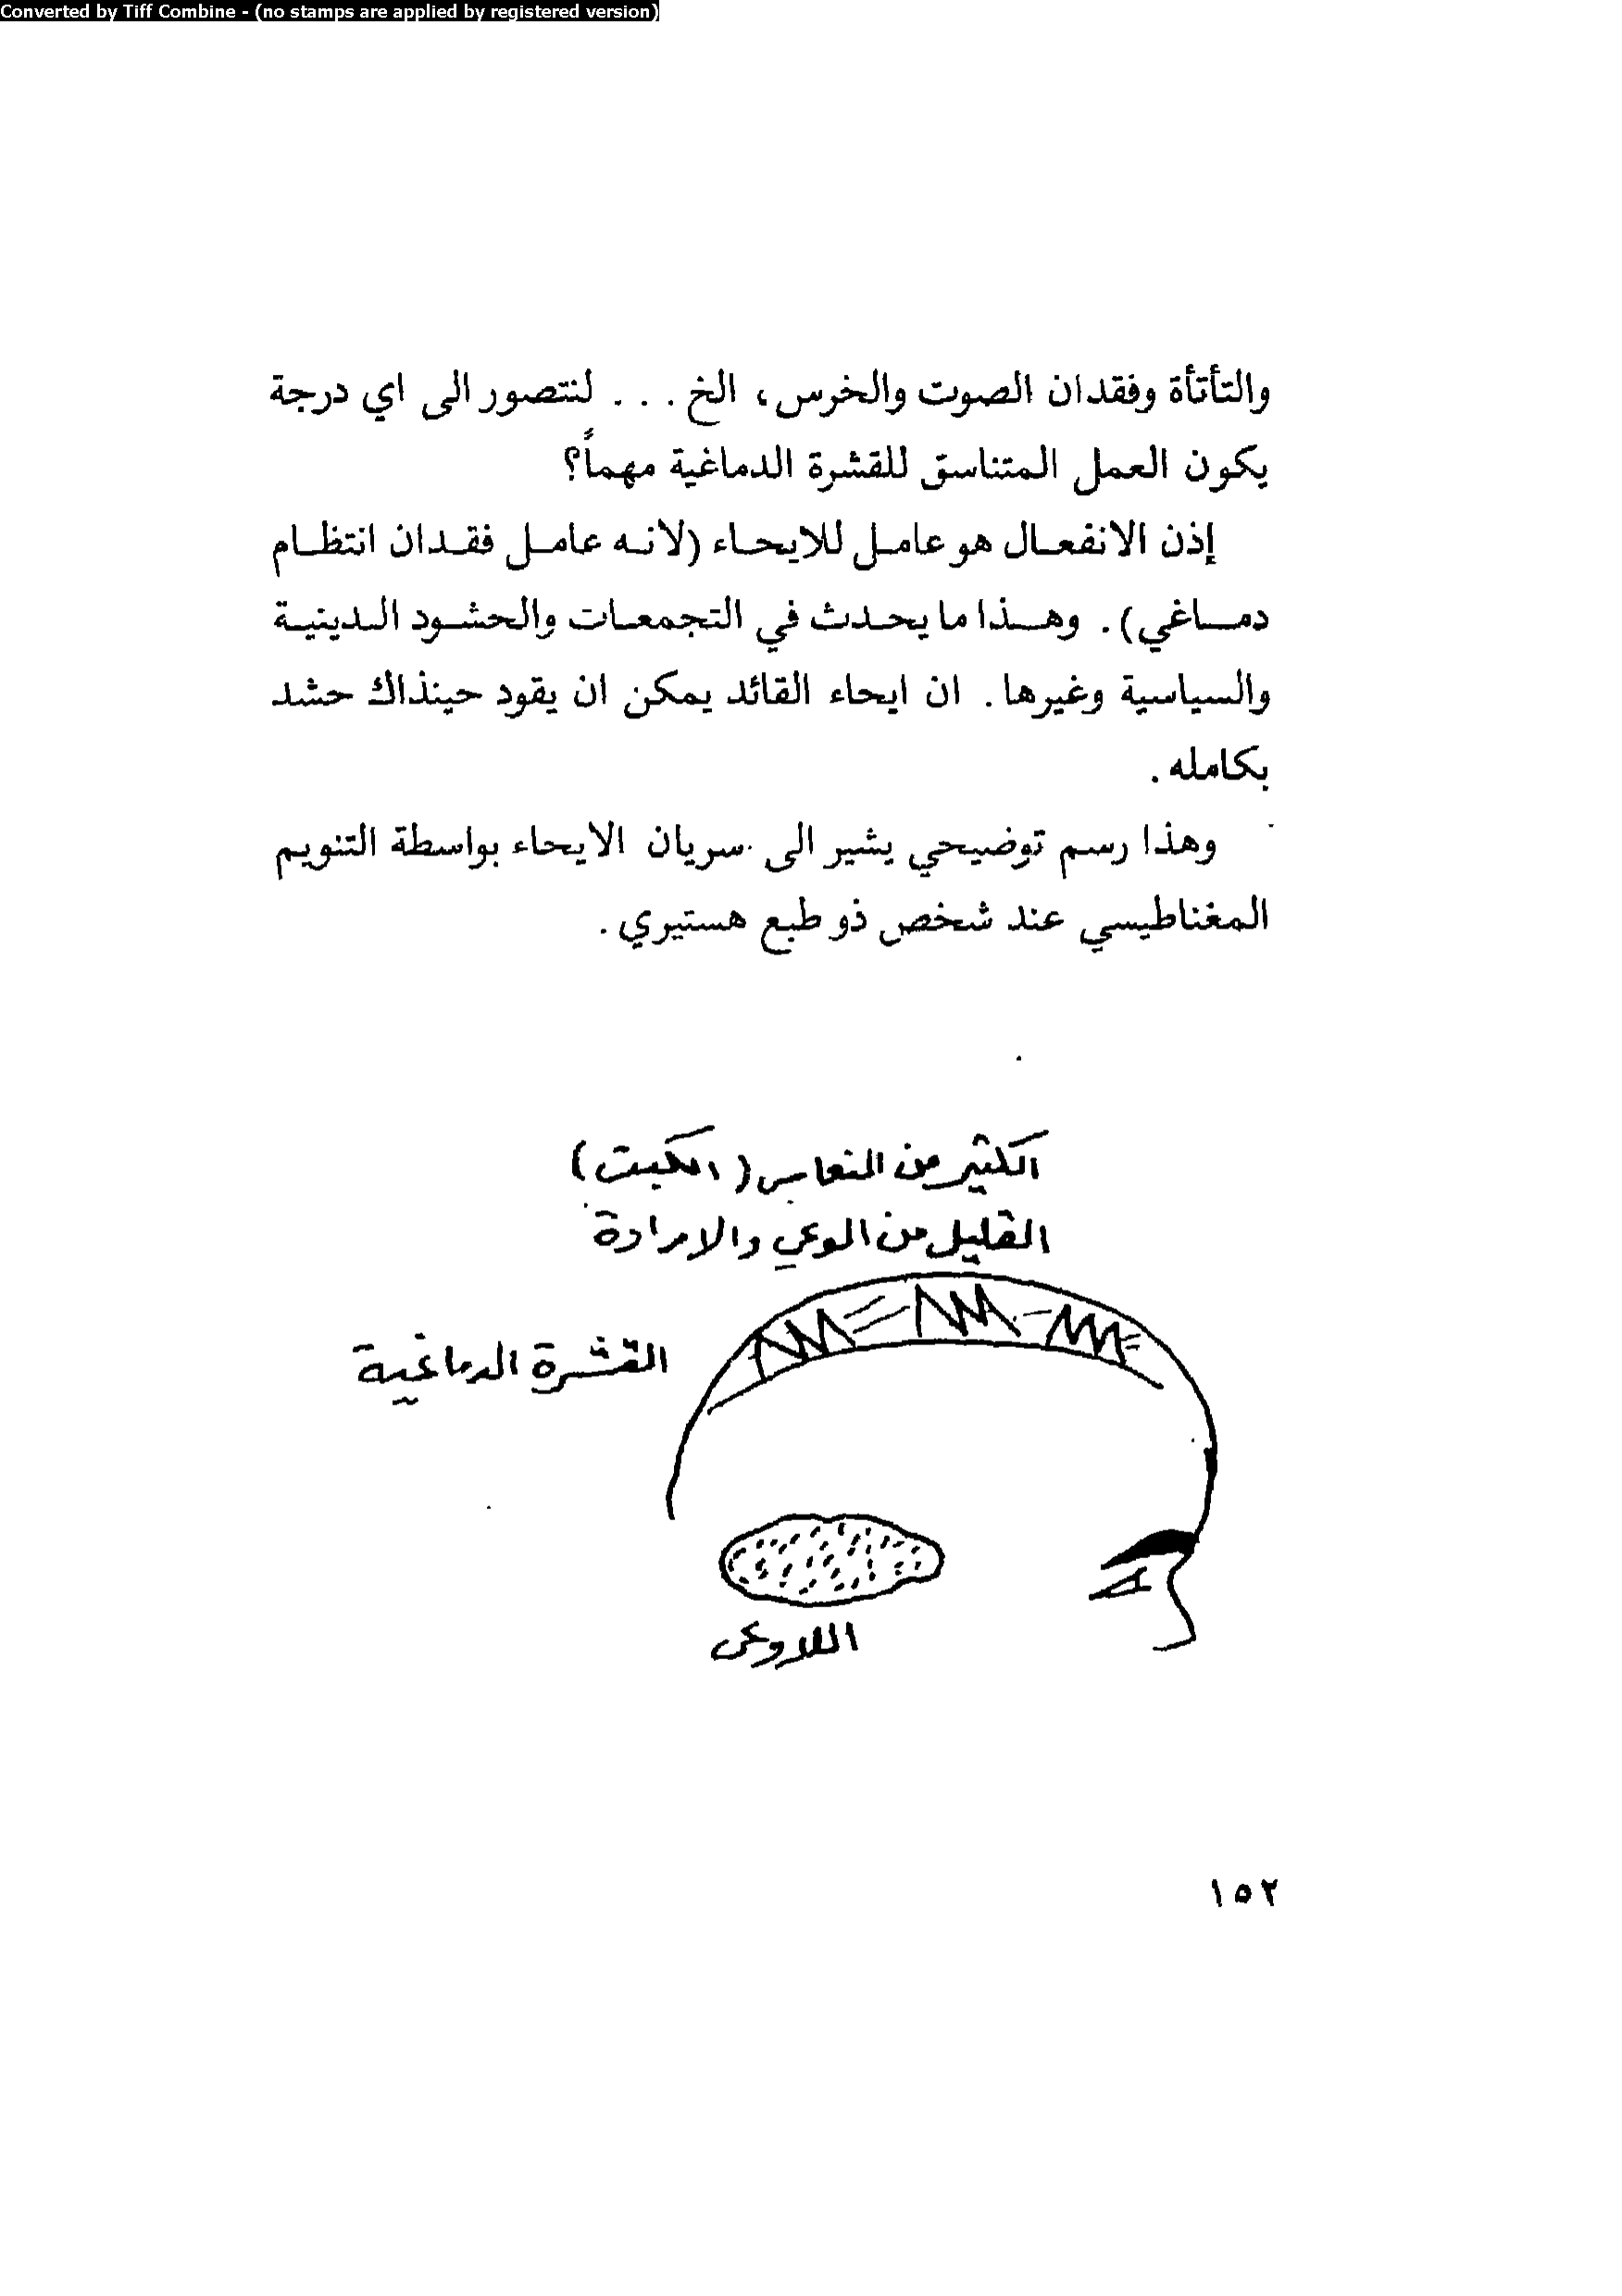 Converted by Tiff Combine - (no stamps are applied by registered version)
والتأتأة وفقدان الصوت والخرس، الخ . . . لنتصور الى اي درجة
يكون العمل المتناسق للقشرة الدماغية مهماً؟
إذن الانفعال هو عامل للايحاء (لانه عامل فقدان انتظام
دماغي). وهذا ما يحدث في التجمعات والحشود الدينية
والسياسية وغيرها. ان ايحاء القائد يمكن ان يقود حينذاك حشد
بكامله.
وهذا رسم توضيحي يشير الى سريان الايحاء بواسطة التنويم
المغناطيسي عند شخص ذو طبع هستيري.
الكثير من النعاس (الكبت)
القليل من الوعي والارادة
القشرة الدماغية
اللاوعي
١٥٢